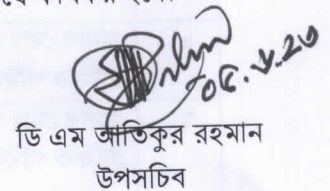 ০৫.৮.২৩
ডি এম আতিকুর রহমান
উপসচিব